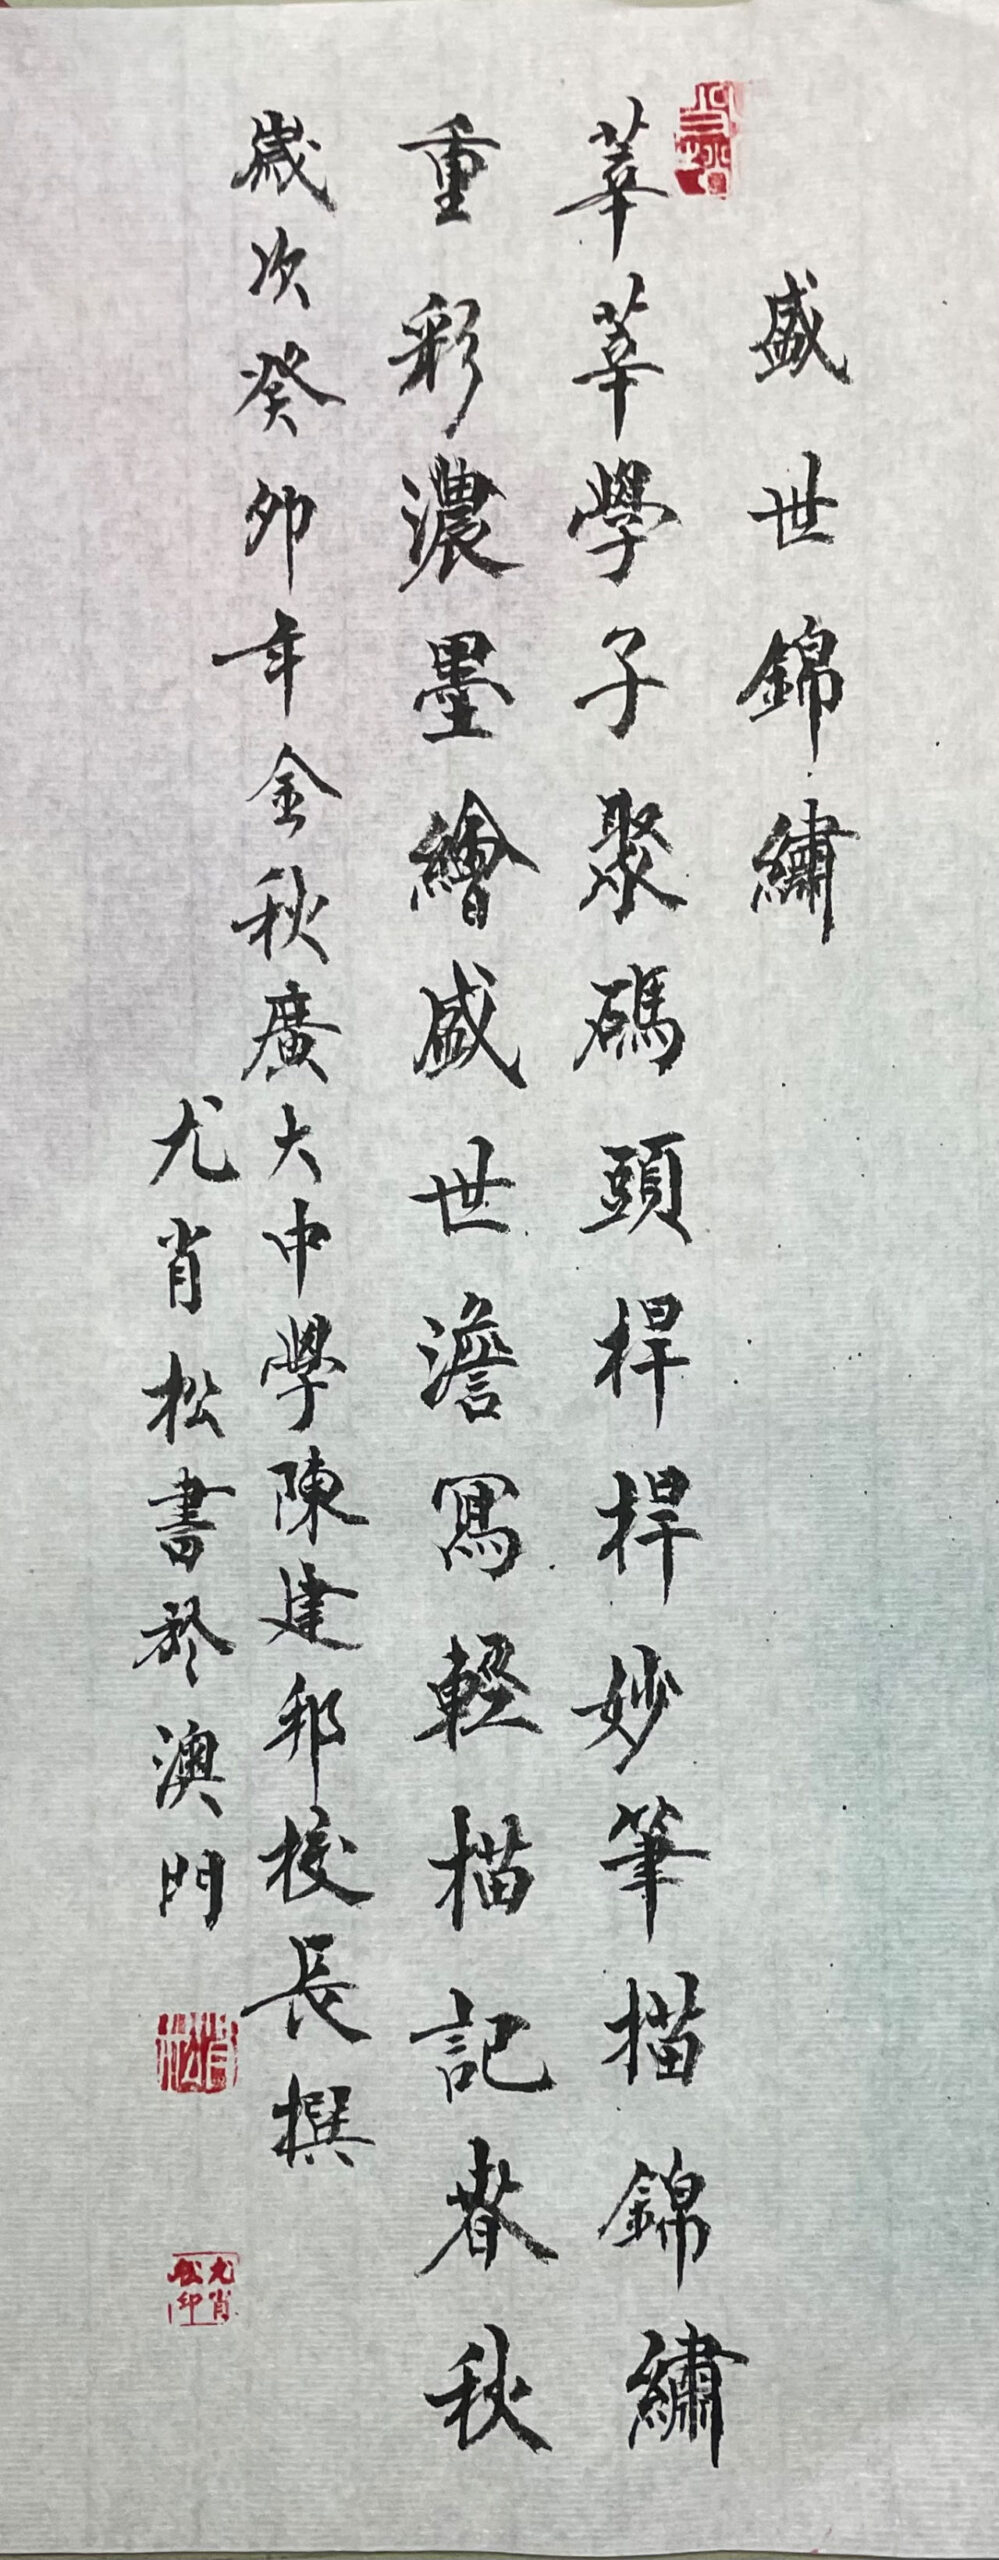 盛世錦繡
莘莘學子聚碼頭桿桿妙筆描錦繡
重彩濃墨繪盛世澹寫輕描記春秋
歲次癸卯年金秋廣大中學陳建邦校長撰
尤肖松書於澳門
肖松
尤肖松印